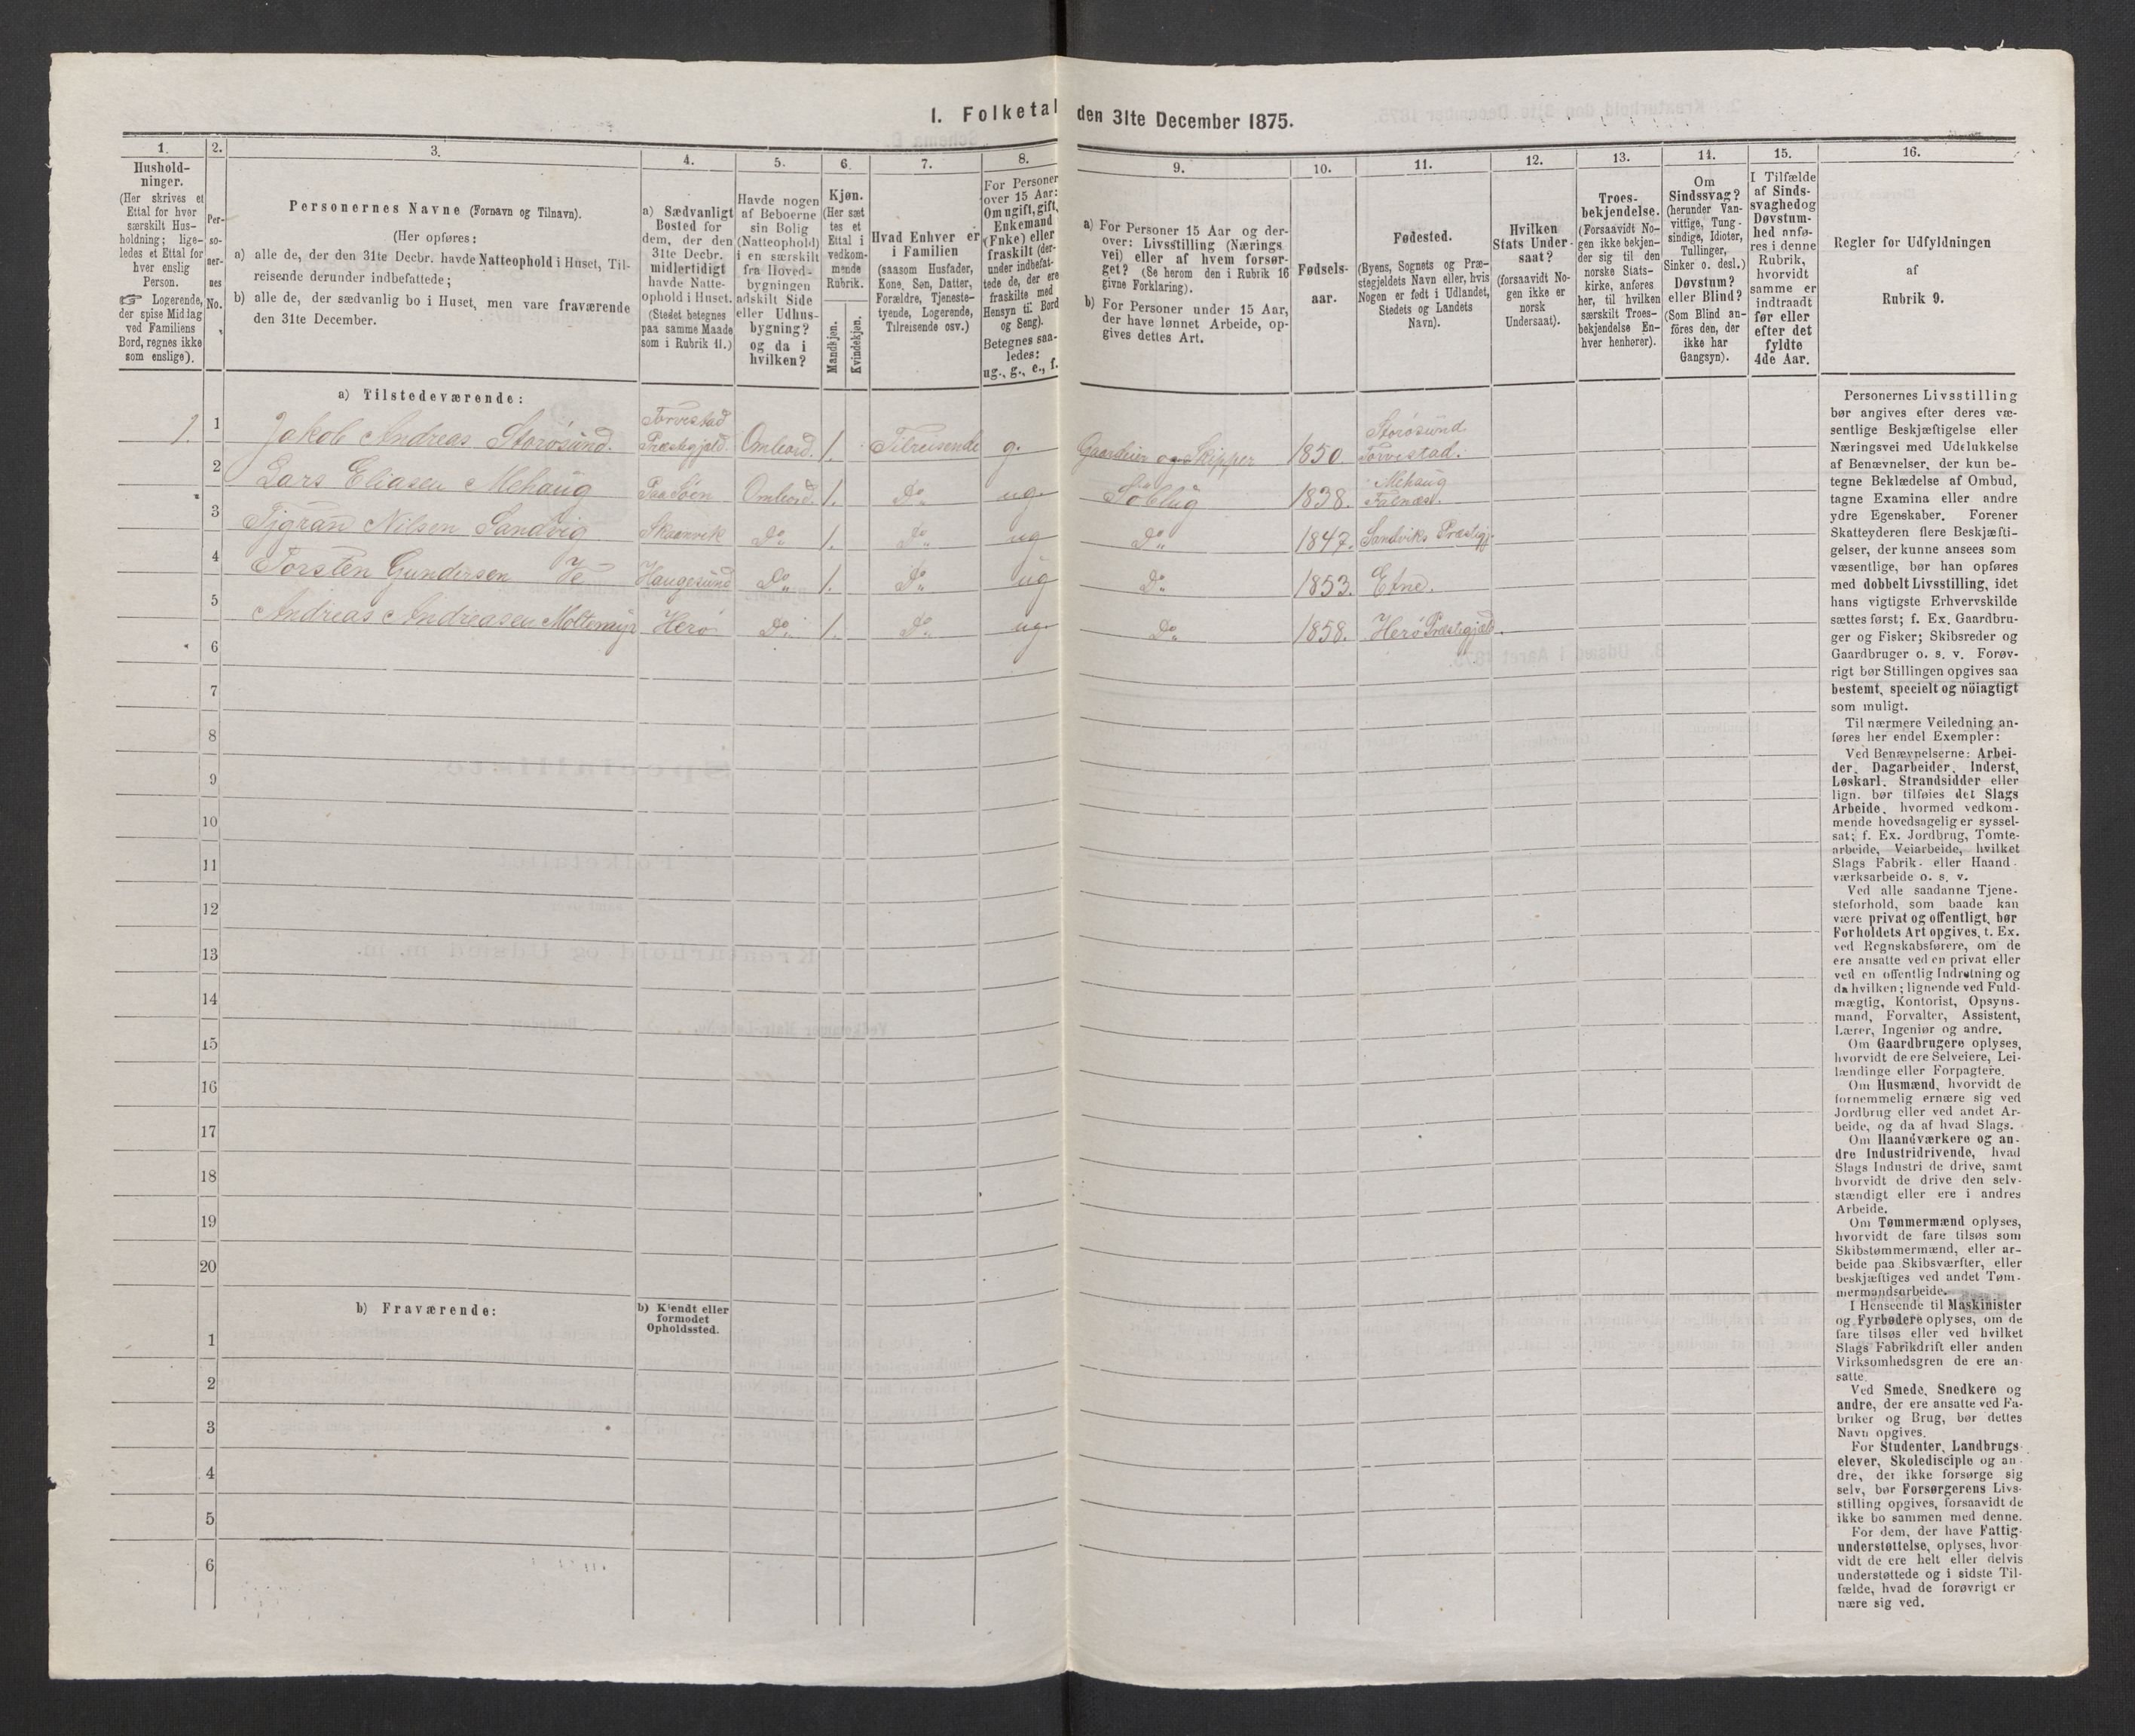 1. Folketal den 31te December 1875.
1.
Hushold-
ninger.
(Her skrives et
Ettal for hver
særskilt Hus-
holdning; lige-
ledes et Ettal for
hver enslig
Person.
☞ Logerende,
der spise Middag
ved Familiens
Bord, regnes ikke
som enslige).
2.
Per-
so-
ner-
nes
No.
3.
Personernes Navne (Fornavn og Tilnavn).
(Her opføres:
a) alle de, der den 31te Decbr. havde Natteophold i Huset, Til-
reisende derunder indbefattede;
b) alle de, der sædvanlig bo i Huset, men vare fraværende
den 31te December.
4.
a) Sædvanligt
Bosted for
dem, der den
31te Decbr.
midlertidigt
havde Natte-
ophold i Huset.
(Stedet betegnes
paa samme Maade
som i Rubrik 11.)
5.
Havde nogen
af Beboerne
sin Bolig
(Natteophold)
i en særskilt
fra Hoved-
bygningen
adskilt Side
eller Udhus-
bygning?
og da i
hvilken?
6.
Kjøn.
(Her sæt
tes et
Ettal i
vedkom-
mende
Rubrik.
Mandkjøn.
Kvindekjøn.
7.
Hvad Enhver er
i Familien
(saasom Husfader,
Kone, Søn, Datter,
Forældre, Tjeneste-
tyende, Logerende,
Tilreisende osv.)
8.
For Personer
over 15 Aar:
Om ugift, gift,
Enkemand
(Enke) eller
fraskilt (der-
under indbefat-
tede de, der ere
fraskilte med
Hensyn til Bord
og Seng).
Betegnes saa-
ledes:
ug., g., e., f.
9.
a) For Personer 15 Aar og der-
over: Livsstilling (Nærings
vei) eller af hvem forsør-
get? (Se herom den i Rubrik 16
givne Forklaring).
b) For Personer under 15 Aar,
der have lønnet Arbeide, op-
gives dettes Art.
10.
Fødsels-
aar.
11.
Fødested.
(Byens, Sognets og Præ-
stegjeldets Navn eller, hvis
Nogen er født i Udlandet,
Stedets og Landets
Navn).
12.
Hvilken
Stats Under-
saat?
(forsaavidt No-
gen ikke er
norsk
Undersaat).
13.
Troes-
bekjendelse.
(Forsaavidt No-
gen ikke bekjen-
der sig til den
norske Stats-
kirke, anføres
her, til hvilken
særskilt Troes-
bekjendelse En-
hver henhører).
14.
Om
Sindssvag?
(herunder Van-
vittige, Tung-
sindige, Idioter,
Tullinger,
Sinker o. desl.)
Døvstum?
eller Blind?
(Som Blind an-
føres den, der
ikke har
Gangsyn).
15.
I Tilfælde
af Sinds-
svaghed og
Døvstum-
hed anfø-
res i denne
Rubrik,
hvorvidt
samme er
indtraadt
før eller
efter det
fyldte
4de Aar.
16.
Regler for Udfyldningen
af
Rubrik 9.
a) Tilstedeværende:
1. 1 Jakob Andreas Storøsund. Torvestad Præstegjæld. Ombord. 1. Tilreisende g. Gaardeier og Skipper 1850. Storøsund Torvestad.
2 Lars Eliasen Mehaug Paa Søen Ombord. 1. Do ug. Søblug 1838. Mehaug Falnæs.
3 Tjgran Nilsen Sandvig Skaanevik Do 1. Do ug Do 1847. Sandviks Præstegj.
4 Torsten Gundersen Ve Haugesund Do 1. Do ug Do 1853. Etne.
5 Andreas Andreasen Moltemyr Herø Do 1. Do ug. Do 1858. Herø Præstegjæld.
6
7
8
9
10
11
12
13
14
15
16
17
18
19
20
b) Fraværende:
b) Kjendt eller
formodet
Opholdssted.
1
2
3
4
5
6
Personernes Livsstilling
bør angives efter deres væ-
sentlige Beskjæftigelse eller
Næringsvei med Udelukkelse
af Benævnelser, der kun be-
tegne Beklædelse af Ombud,
tagne Examina eller andre
ydre Egenskaber. Forener
Skatteyderen flere Beskjæfti-
gelser, der kunne ansees som
væsentlige, bør han opføres
med dobbelt Livsstilling, idet
hans vigtigste Erhvervskilde
sættes først; f. Ex. Gaardbru-
ger og Fisker; Skibsreder og
Gaardbruger o. s. v. Forøv-
rigt bør Stillingen opgives saa
bestemt, specielt og nöiagtigt
som muligt.
Til nærmere Veiledning an-
føres her endel Exempler:
Ved Benævnelserne: Arbei-
der, Dagarbeider, Inderst,
Løskarl, Strandsidder eller
lign. bør tilføies det Slags
Arbeide, hvormed vedkom-
mende hovedsagelig er syssel-
sat; f. Ex. Jordbrug, Tomte-
arbeide, Veiarbeide, hvilket
Slags Fabrik- eller Haand-
værksarbeide o. s. v.
Ved alle saadanne Tjene-
steforhold, som baade kan
være privat og offentligt, bør
Forholdets Art opgives, t. Ex.
ved Regnskabsførere, om de
ere ansatte ved en privat eller
ved en offentlig Indretning og
da hvilken; lignende ved Fuld-
mægtig, Kontorist, Opsyns-
mand, Forvalter, Assistent,
Lærer, Ingeniør og andre.
Om Gaardbrugere oplyses,
hvorvidt de ere Selveiere, Lei-
lændinge eller Forpagtere.
Om Husmænd, hvorvidt de
fornemmelig ernære sig ved
Jordbrug eller ved andet Ar-
beide, og da af hvad Slags.
Om Haandværkere og an-
dre Industridrivende, hvad
Slags Industri de drive, samt
hvorvidt de drive den selv-
stændigt eller ere i andres
Arbeide.
Om Tømmermænd oplyses,
hvorvidt de fare tilsøs som
Skibstømmermænd, eller ar-
beide paa Skibsværfter, eller
beskjæftiges ved andet Tøm-
mermandsarbeide.
I Henseende til Maskinister
og Fyrbødere oplyses, om de
fare tilsøs eller ved hvilket
Slags Fabrikdrift eller anden
Virksomhedsgren de ere an-
satte.
Ved Smede, Snedkere og
andre, der ere ansatte ved Fa-
briker og Brug, bør dettes
Navn opgives.
For Studenter, Landbrugs-
elever, Skoledisciple og an-
dre, der ikke forsørge sig
selv, bør Forsørgerens Livs-
stilling opgives, forsaavidt de
ikke bo sammen med denne.
For dem, der have Fattig-
understøttelse, oplyses, hvor-
vidt de ere helt eller delvis
understøttede og i sidste Til-
fælde, hvad de forøvrigt er
nære sig ved.